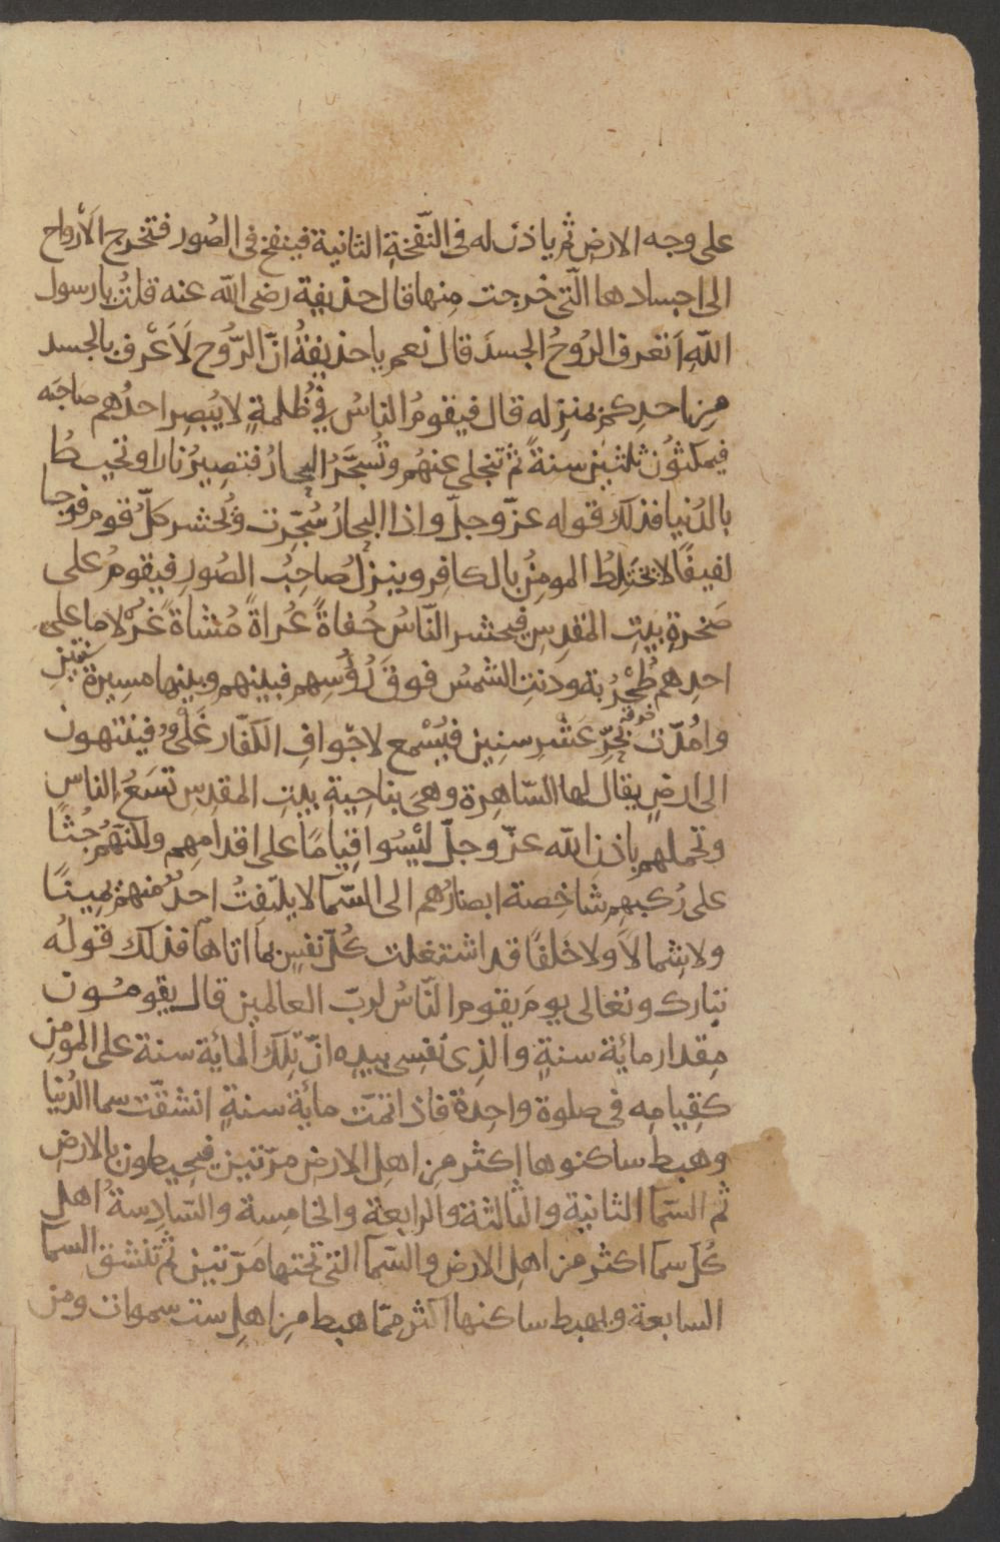 على وجه الارض ثم ياذن له فى النّفخة الثانية فينفخ فى الصُور فتخرج الأرواح
الى اجسادها الّتى خرجت مِنها قال حذيفة رضى الله عنه قلتُ يا رسول
اللهِ اَتعرف الرُوحُ الجسدَ قال نعم يا حذيفةُ انّ الرُّوح لَاَعْرف بالجسد
مِن احدِكم بمنزِله قال فيقومُ الناسُ فى ظُلمةٍ لا يُبصِر احدُهم صاحبَه
فيمكثُون ثلثين سنةً ثم تنجلى عنهُم وتُسجَّرُ البحارُ فتصِيرُ نارا وتحيطُ
بالدُنيا فذلك قوله عزّ وجلّ واذا البحارُ سُجّرت ويُحشر كلّ قوم فوجا
لفيفًا لا يختَلِطُ المومِنُ بالكافِر وينزلُ صاحِبُ الصُورِ فيقومُ على
صَخرةِ بيتِ المقدِسِ فيحشر النّاسُ حُفاةً عُراةً مُشاةً غُرْلا ما على
احدِهم طُحْرُبة ودنتِ الشمسُ فوقَ رُؤُسِهم فبينهم وبينها مسِيرة سنتين
وامُدّت بحَرّ عَشْرِ سنِين فيُسْمع لاجْوافِ الكفّار غَلْىٌ فينتهون
الى ارضٍ يقال لها السّاهِرة وهى بناحِيةِ بيتِ المقدِس تسَعُ الناس
وتحملهم باذنِ الله عزّ وجلّ ليْسُوا قيامًا على اقدامِهم ولكنّهُم جُثًا
على رُكبهِم شاخِصة ابصارُهم الى السّما لا يلتفتُ احدٌ منهم يمِينًا
ولا شِمالًا ولا خلفًا قد اشتغلت كُلّ نفسٍ بما اتاها فذلك قولُه
تبارك وتعالى يومَ يقوم النّاسُ لربّ العالمين قال يقومُون
مِقدار مائة سنةٍ والذِى نفسِى بيدِه انّ تِلك المائة سنة على المومِن
كقِيامِه فى صلوة واحِدة فاذا تمّت مائة سنةٍ انشقّت سما الدُنيا
وهبط ساكنوها اكثر مِن اهل الارض مرّتين فيحِيطون بالارض
ثم السّما الثانية والثالثة والرابعة والخامسة والسّادِسةُ اهل
كُلّ سما اكثر من اهل الارض والسّما التى تحتها مَرّتين ثم تنشق السما
السابعة ويهبط ساكنها اكثر ممّا هبط مِن اهل ست سموات ومن